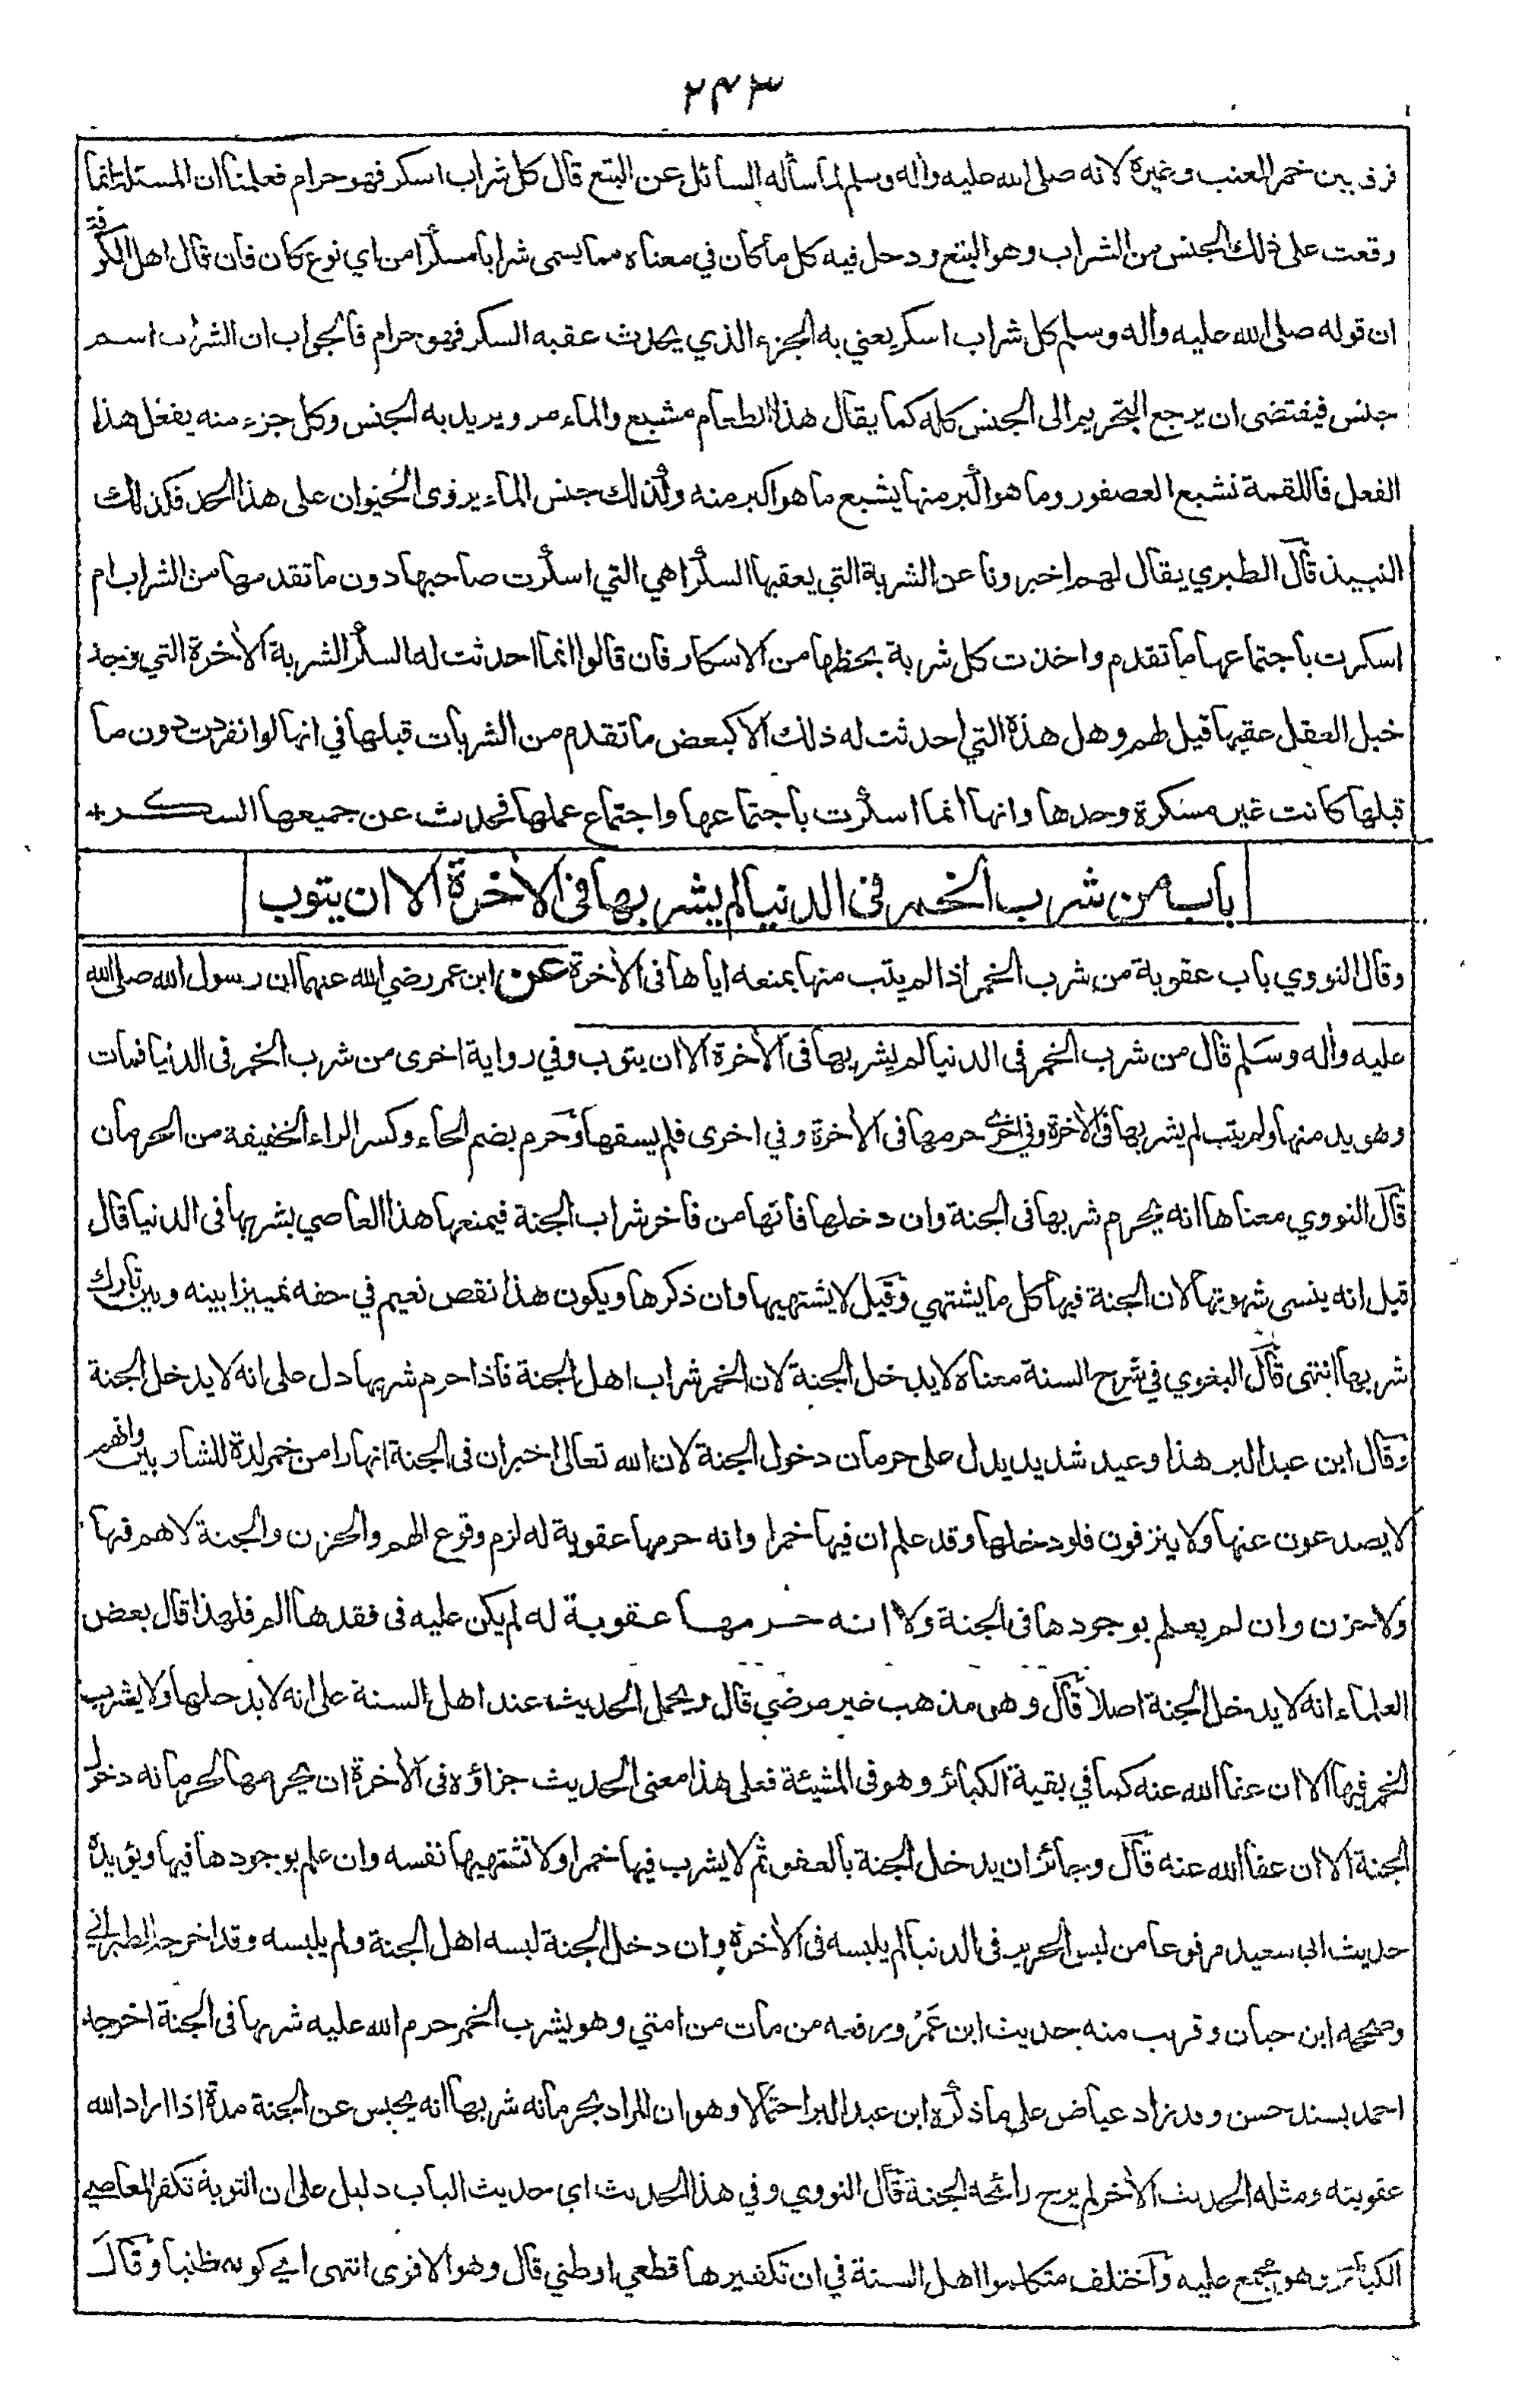 ٢٤٣
فرق بين خمر العنب وغيره لانه صلى الله عليه وأله وسلم لما سأله السائل عن البتع قال كل شراب اسكر فهو حرام فعلمنا ان المسئلة انما
وقعت على ذلك الجنس من الشراب وهو البتع ودخل فيه كل ما كان في معناه مما يسمى شرابا مسكرا من اي نوع كان فان قال اهل الكوفة
ان قوله صلى الله عليه وأله وسلم كل شراب اسكر يعني به الجزء الذي يحدث عقبه السكر فهو حرام فالجواب ان الشراب اسم
جنس فيقتضى ان يرجع التحريم الى الجنس كله كما يقال هذا الطعام مشبع والماء مر ويريد به الجنس وكل جزء منه يفعل هذا
الفعل فاللقمة تشبع العصفور وما هو اكبر منها يشبع ما هو اكبر منه وكذلك جنس الماء يروى الحيوان على هذا الحد فكذلك
النبيذ قال الطبري يقال لهم اخبرونا عن الشربة التي يعقبها السكر اهي التي اسكرت صاحبها دون ما تقدمها من الشراب ام
اسكرت باجتماعها ما تقدم واخذت كل شربة بحظها من الاسكار فان قالوا انما احدثت له السكر الشربة الأخرة التي وجد
خبل العقل عقبها قيل لهم وهل هذه التي احدثت له ذلك الا كبعض ما تقدم من الشربات قبلها في انها لو انفردت دون ما
قبلها كانت غير مسكرة وحدها وانها انما اسكرت باجتماعها واجتماع عملها فحدث عن جميعها السكر +
باب من شرب الخمر فى الدنيا لم يشربها فى الأخرة الا ان يتوب
وقال النووي باب عقوبة من شرب الخمر اذا لم يتب منها بمنعه اياها فى الأخرة عن ابن عمر رضي الله عنهما ان رسول الله صلى الله
عليه وأله وسلم قال من شرب الخمر فى الدنيا لم يشربها فى الأخرة الا ان يتوب وفي رواية اخرى من شرب الخمر فى الدنيا فمات
وهو يدمنها ولم يتب لم يشربها فى الأخرة وفي اخرى حرمها فى الأخرة وفي اخرى فلم يسقها وحرم بضم الحاء وكسر الراء الخفيفة من الحرمان
قال النووي معناها انه يحرم شربها فى الجنة وان دخلها فانها من فاخر شراب الجنة فيمنعها هذا العاصي بشربها فى الدنيا قال
قيل انه ينسى شهوتها لان الجنة فيها كل ما يشتهي وقيل لا يشتهيها وان ذكرها ويكون هذا نقص نعيم في حقه تمييزا بينه وبين تارك
شربها انتهى قال البغوي في شرح السنة معناه لا يدخل الجنة لان الخمر شراب اهل الجنة فاذا حرم شربها دل على انه لا يدخل الجنة
وقال ابن عبد البر هذا وعيد شديد يدل على حرمان دخول الجنة لان الله تعالى اخبر ان فى الجنة انهارا من خمر لذة للشاربين وانهم
لا يصدعون عنها ولا ينزفون فلو دخلها وقد علم ان فيها خمرا وانه حرمها عقوبة له لزم وقوع الهم والحزن والجنة لا هم فيها
ولا حزن وان لم يعلم بوجودها فى الجنة ولا انه حرمها عقوبة له لم يكن عليه فى فقدها الم فلهذا قال بعض
العلماء انه لا يدخل الجنة اصلا قال وهو مذهب غير مرضي قال ويحمل الحديث عند اهل السنة على انه لا يدخلها ولا يشرب
الخمر فيها الا ان عفا الله عنه كما في بقية الكبائر وهو فى المشيئة فعلى هذا معنى الحديث جزاؤه فى الأخرة ان يحرمها لحرمانه دخول
الجنة الا ان عفا الله عنه قال وجائز ان يدخل الجنة بالعفو ثم لا يشرب فيها خمرا ولا تشتهيها نفسه وان علم بوجودها فيها ويؤيده
حديث ابى سعيد مرفوعا من لبس الحرير فى الدنيا لم يلبسه فى الأخرة وان دخل الجنة لبسه اهل الجنة ولم يلبسه وقد اخرجه الطبراني
وصححه ابن حبان وقريب منه حديث ابن عمرو رفعه من مات من امتي وهو يشرب الخمر حرم الله عليه شربها فى الجنة اخرجه
احمد بسند حسن وقد زاد عياض على ما ذكره ابن عبد البر احتمالا وهو ان المراد بحرمانه شربها انه يحبس عن الجنة مدة اذا اراد الله
عقوبته ومثله الحديث الأخر لم يرح رائحة الجنة قال النووي وفي هذا الحديث اي حديث الباب دليل على ان التوبة تكفر المعاصي
الكبائر وهو مجمع عليه واختلف متكلموا اهل السنة في ان تكفيرها قطعي او ظني قال وهو الاقوى انتهى اي كونه ظنيا وقال